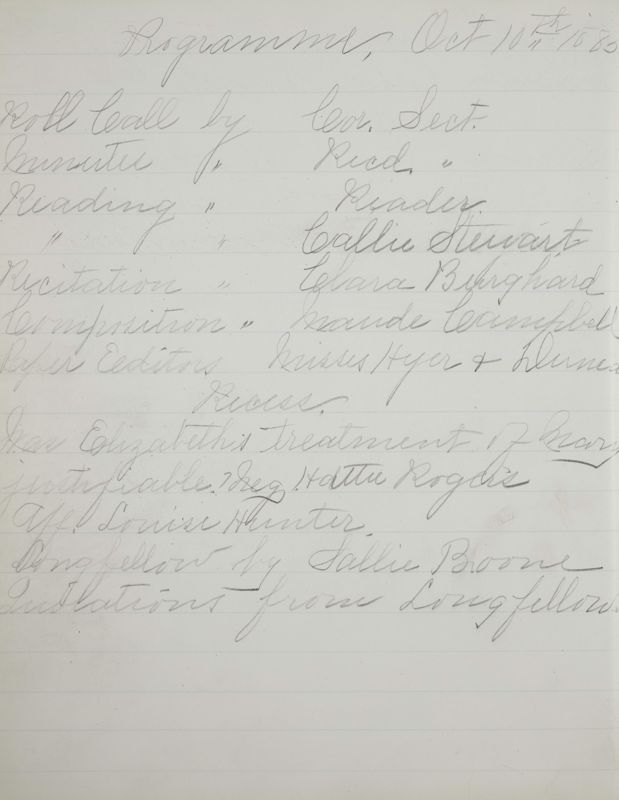 Programme, Oct 10th
Roll Call by Cor. Sect.
Minutes " Recd. "
Reading " Reader.
" " Callie Stewart
Recitation " Clara Burghard
Composition " Maude Campbell
Paper Eeditors Misses Hyer +
Recess.
Was Elizabeth's treatment of Mary
justifiable? Neg. Hattie Rogers
Aff. Louise Hunter.
Longfellow by Sallie Boone
Quotations from Longfellow.